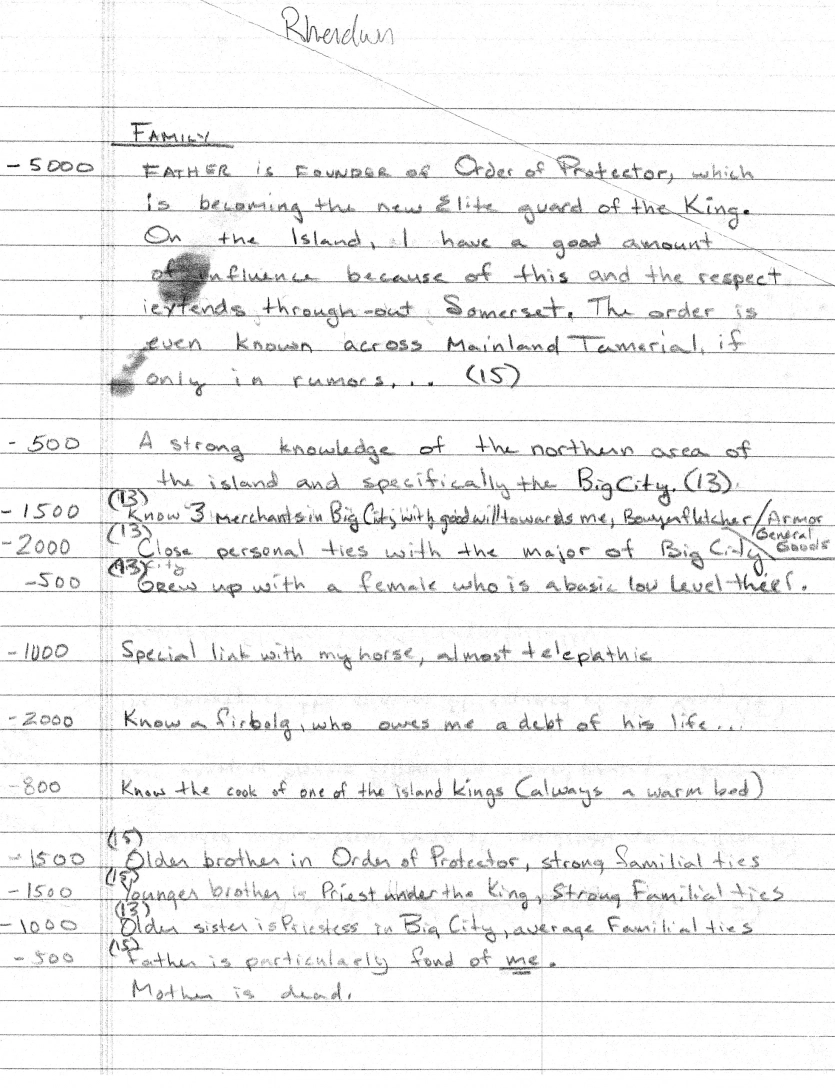 Rherdwn
FAMILY
-5000 FATHER is FOUNDER OF Order of Protector, which
is becoming the new Elite guard of the King.
On the Island, I have a good amount
of influence because of this and the respect
extends through-out Somerset. The order is
even known across Mainland Tamerial, if
only in rumors... (15)
-500 A strong knowledge of the northern area of
the island and specifically the Big City. (13)
-1500 (13) Know 3 Merchants in Big City with good will towards me, Bowyer/fletcher/Armor
General Goods
-2000 (13) Close personal ties with the major of Big City
-500 (13) Grew up with a female who is a basic low level thief.
-1000 Special link with my horse, almost telepathic
-2000 Know a firbolg, who owes me a debt of his life...
-800 Know the cook of one of the island kings (always a warm bed)
-1500 (15) Older brother in Order of Protector, strong familial ties
-1500 (15) Younger brother is Priest under the King, Strong Familial ties
-1000 (13) Older sister is Priestess in Big City, average Familial ties
-500 (15) Father is particularly fond of me.
Mother is dead.